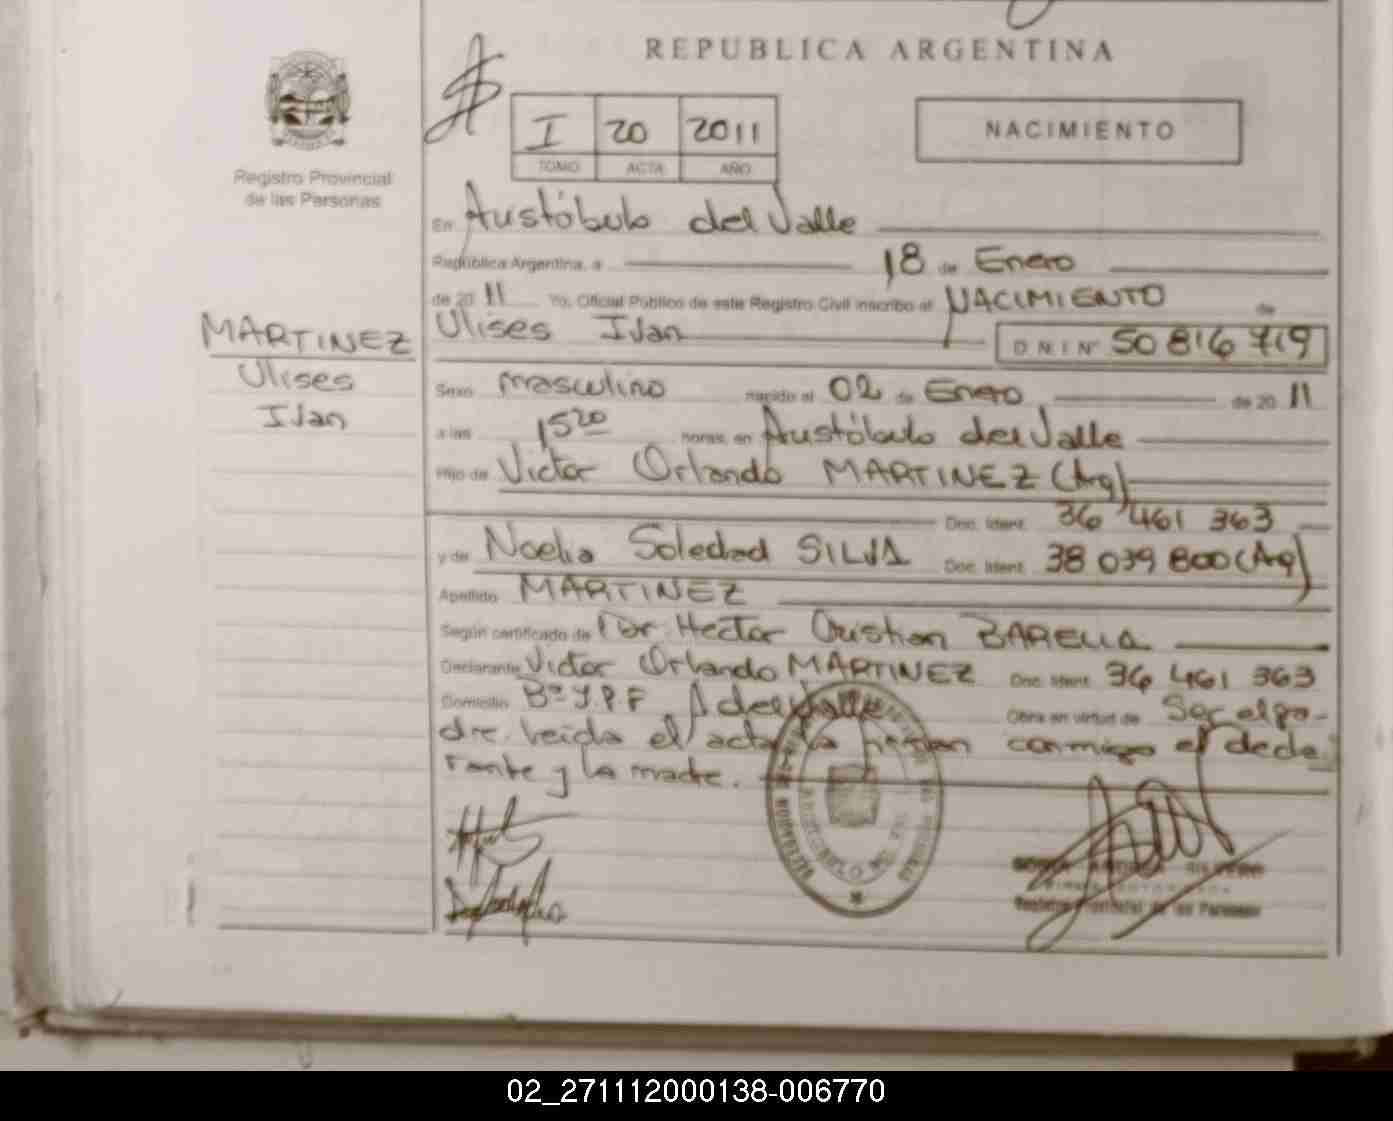 REPUBLICA ARGENTINA
Registro Provincial
de las Personas
I 20 2011
TOMO ACTA AÑO
NACIMIENTO
En Aristóbulo del Valle
República Argentina, a 18 de Enero
de 20 11 Yo, Oficial Público de este Registro Civil inscribo el NACIMIENTO de
MARTINEZ
Ulises
Ivan
Ulises Ivan D.N.I. Nº 50 816 719
Sexo masculino nacido el 02 de Enero de 20 11
a las 15 20 horas, en Aristóbulo del Valle
Hijo de Victor Orlando MARTINEZ (Arg)
Doc. Ident. 36 461 363
y de Noelia Soledad SILVA Doc. Ident. 38 039 800 (Arg)
Apellido MARTINEZ
Según certificado de Dr. Hector Cristian BARELLA
Declarante Victor Orlando MARTINEZ Doc. Ident. 36 461 363
Domicilio Bº Y.P.F A del Valle Obra en virtud de Ser el pa-
dre. Leída el acta la firman conmigo el decla
rante y la madre.
Registro Provincial de las Personas
02_271112000138-006770